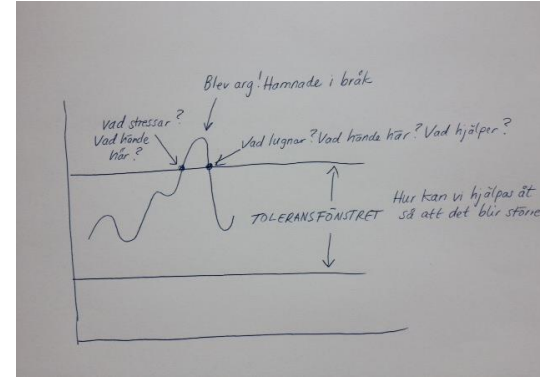 Blev arg! Hamnade i bråk
Vad stressar?
Vad hände
här?
Vad lugnar? Vad hände här? Vad hjälper?
TOLERANSFÖNSTRET
Hur kan vi hjälpas åt
så att det blir större